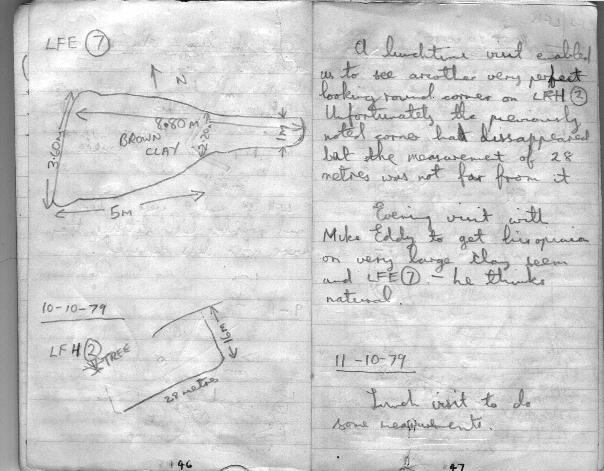 LFE ⑦
N
8.80 M
3.60 M
2.20
1M
BROWN
CLAY
5M
10-10-79
LFH ②
TREE
16M
28 metres
46
A lunchtime visit enabled
us to see another very perfect
looking round corner on LFH ②
Unfortunately the previously
noted corner had dissappeared
but the measuremet of 28
metres was not far from it
Evening visit with
Mike Eddy to get his opinion
on very large clay seem
and LFE ⑦ - he thinks
natural.
11-10-79
Lunch visit to do
some measurements.
47